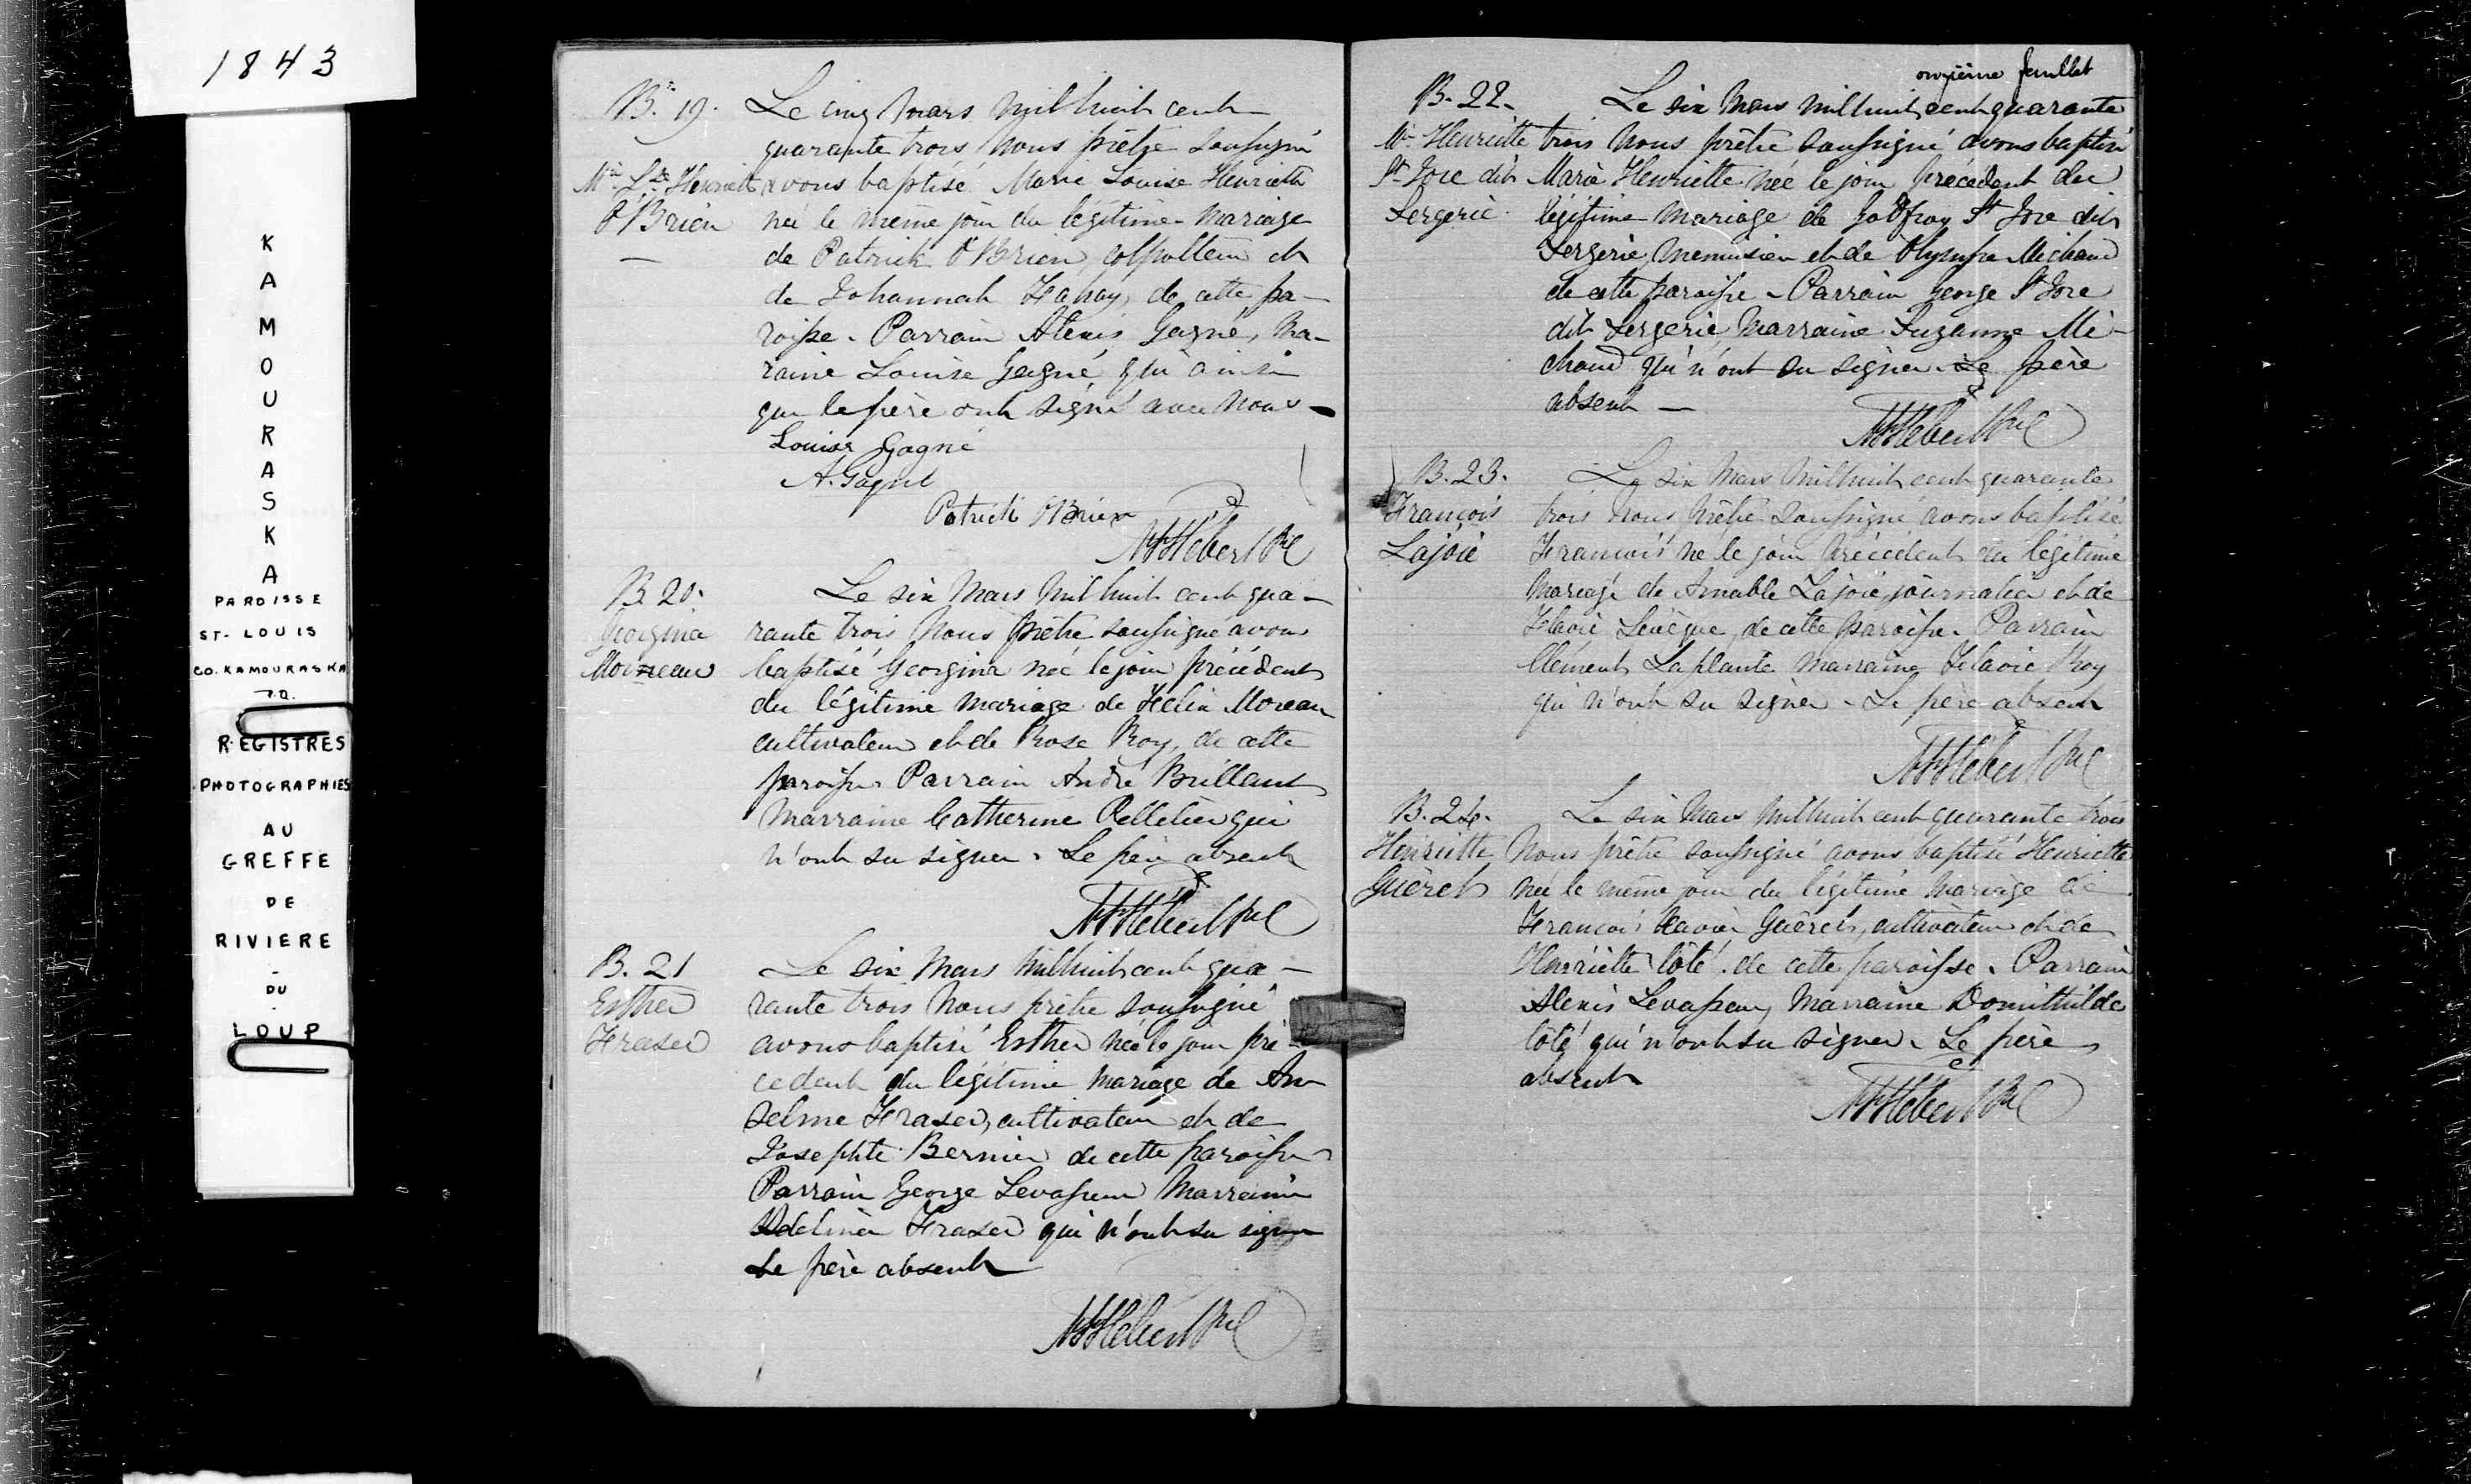 1843
KAMOURASKA
PAROISSE
ST-LOUIS
CO. KAMOURASKA
P.Q.
REGISTRES
PHOTOGRAPHIES
AU
GREFFE
DE
RIVIERE
-
DU
-
LOUP
B. 19.
Mie Lse Henriett
O'Brien
—
Le cinq Mars mil huit cent
quarante trois Nous prêtre soussigné
avons baptisé Marie Louise Henriette
née le même jour du légitime mariage
de Patrick O'Brien, colporteur et
de Johannah Fahay, de cette pa-
roisse. Parrain Alexis Gagné, Ma-
raine Louise Gagné qui ainsi
que le père ont signé avec nous —
Louise Gagné
A. Gagné
Patrick OBrien
NHébert Ptre
B. 20.
Georgina
Moreau
Le six Mars mil huit cent qua-
rante trois Nous prêtre soussigné avons
baptisé Georgina née le jour précédent
du légitime mariage de Felix Moreau
cultivateur et de Rose Roy, de cette
paroisse. Parrain André Brillant
Marraine Catherine Pelletier qui
n'ont su signer. Le père absent
NHébert Ptre
B. 21
Esther
Fraser
Le six Mars mil huit cent qua-
rante trois Nous prêtre soussigné
avons baptisé Esther née le jour pré-
cedent du légitime mariage de An-
selme Fraser, cultivateur et de
Josephte Bernier de cette paroisse
Parrain George Levasseur Marraine
Adeline Fraser qui n'ont su signer
Le père absent
NHébert Ptre
onzième feuillet
B. 22.
Mie Henriette
St Jore dit
Sergerie.
Le six Mars mil huit cent quarante
trois Nous prêtre soussigné avons baptisé
Marie Henriette née le jour précédent du
légitime mariage de Godfroy St Jore dit
Sergerie, menuisier et de Olympe Michaud
de cette paroisse - Parrain George St Jore
dit Sergerie, Marraine Suzanne Mi-
chaud qui n'ont su signer. Le père
absent —
NHébert Ptre
B. 23.
François
Lajoie
Le six Mars mil huit cent quarante
trois Nous prêtre soussigné avons baptisé
François né le jour précédent du légitime
mariage de Amable Lajoie, journalier et de
Flavie Levêque, de cette paroisse. Parrain
Clément Laplante Marraine Flavie Roy
qui n'ont su signer. Le père absent
NHébert Ptre
B. 24.
Henriette
Guèret
Le six Mars mil huit cent quarante trois
Nous prêtre soussigné avons baptisé Henriette
née le même jour du légitime mariage de
François Xavier Guèret, cultivateur et de
Henriette Côté de cette paroisse. Parrain
Alexis Levasseur, Marraine Domithilde
Côté qui n'ont su signer. Le père
absent
NHébert Ptre